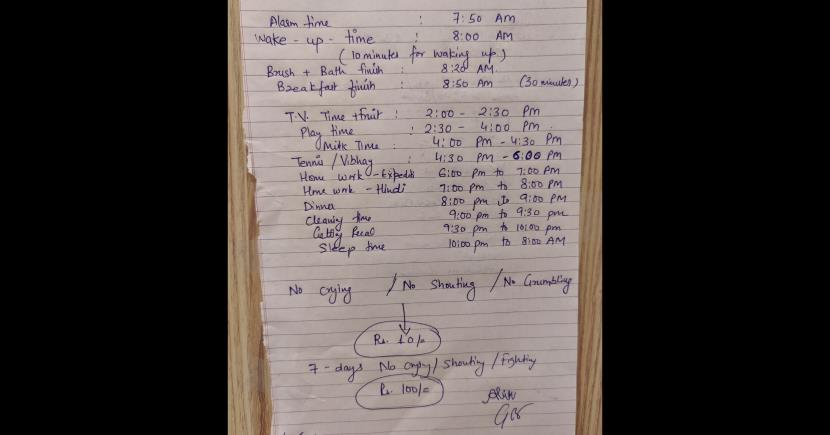 Alarm time : 7:50 AM
Wake-up-time : 8:00 AM
(10 minutes for waking up)
Brush + Bath finish : 8:20 AM
Breakfast finish : 8:50 AM (30 minutes)
T.V. Time + fruit : 2:00 - 2:30 PM
Play time : 2:30 - 4:00 PM
Milk Time : 4:00 PM - 4:30 PM
Tennis / Vibhay : 4:30 PM - 6:00 PM
Home work - 6:00 Pm to 7:00 AM
Home work - Hindi 7:00 pm to 8:00 PM
Dinner 8:00 pm to 9:00 PM
Cleaning time 9:00 pm to 9:30 pm
9:30 pm to 10:00 pm
Sleep time 10:00 pm to 8:00 AM
No Crying / No Shouting / No Grumbling
Rs. 10/-
7 - days No Crying / Shouting / Fighting
Rs. 100/=